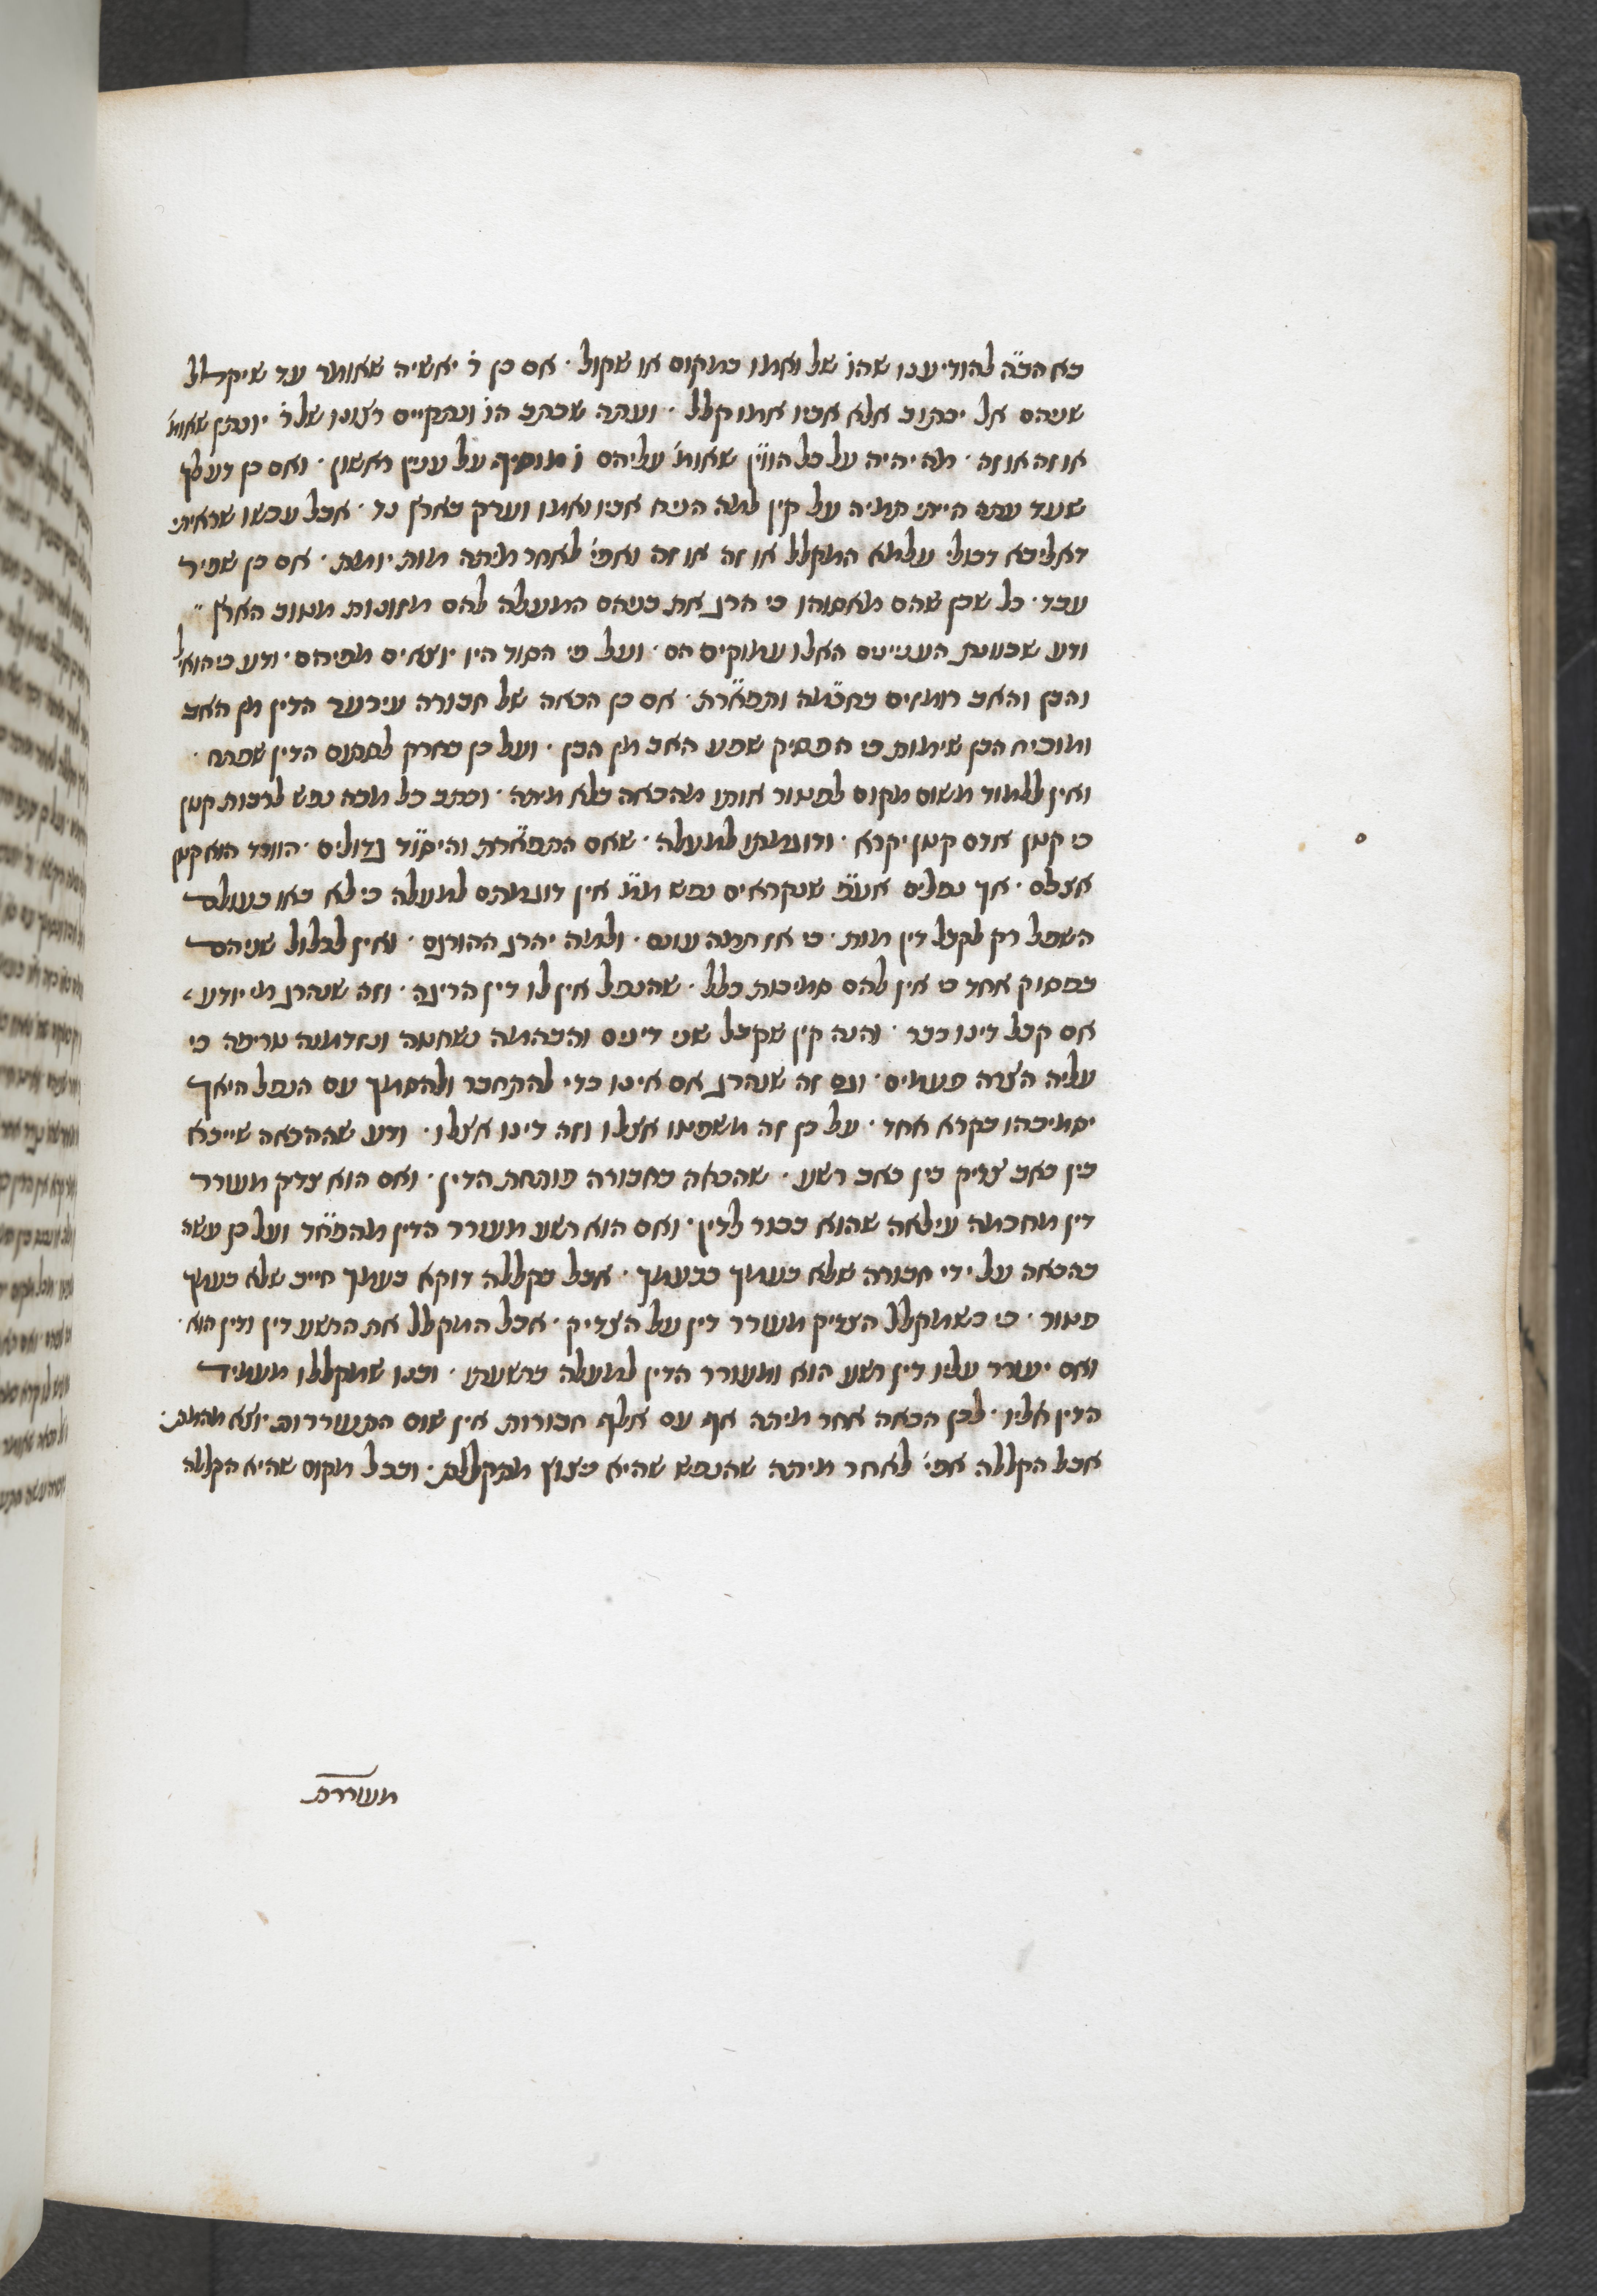 בא הב״ה להודיענו שהו׳ של ואמו במקום או שקול · אם כן ר׳ יאשיה שאומר עד שיקלל
שניהם אל יכתוב אלא אביו אמו קלל · ועתה שכתב הו׳ ונתקיים רצונו של ר׳ יונתן שאומ׳
או זה או זה · מה יהיה על כל הווין שאומ׳ עליהם ו׳ מוסיף על ענין ראשון · ואם כן דע לך
שעד עתה הייתי תמיה על קין למה הניח אביו ואמו וערק בארץ נד · אבל עכשו שראיתי
דאליבא דכולי עלמא המקלל או זה או זה ואפי׳ לאחר מיתה מות יומת · אם כן שפיר
עבד · כל שכן שהם מאסוהו כי הרג את בניהם המעלה להם מזונות מטוב הארץ ״
ודע שכוונת העניינים האלו עמוקים הם · ועל פי הסוד היו יוצאים מפיהם · ודע כי הואיל
והבן והאב רומזים בחכמה ותפארת · אם כן הכאה של חבורה עירער הדין מן האב
ומוכיח הבן שימות כי הפסיק שפע האב מן הבן · ועל כן בחנק לסתום הדין שפתח ·
ואין ללמוד משום מקום לפטור אותו מהכאה בלא מיתה · וכתב כל מכה נפש לרבות קטן
כי קטן אדם קטן יקרא · ודוגמתו למעלה · שאם התפארת והיסוד גדולים · הוולד הוא קטן
אצלם · אך נפלים אע״פ שנקראים נפש מת אין דוגמתם למעלה כי לא באו בעולם
השפל רק לקבל דין מות · כי אז תמה עונם · ולמה יהרג ההורגם · ואין לכלול שניהם
בפסוק אחד כי אין להם סמיכות כלל · שהנפל אין לו דין הריגה · וזה שנהרג מי יודע
אם קבל דינו כבר · והנה קין שקבל שני דינים והבהמה נשחטה ונזדמנה טריפה כי
עליה הצרה פעמים · וגם זה שנהרג אם אינו כדי להתחבר ולהסמך עם הנפל היאך
יסמיכהו בקרא אחד · על כן זה משפטו אצלו וזה דינו אצלו · ודע שההכאה שייכא
בין באב צדיק בין באב רשע · שהכאה בחבורה פותחת הדין · ואם הוא צדיק מעורר
דין מחכמה עילאה שהוא ככור לדין · ואם הוא רשע מעורר הדין מהפחד ועל כן עשה
בהכאה על ידי חבורה שלא בעמך כבעמך · אבל בקללה דוקא בעמך חייב שלא בעמך
פטור · כי כשמקלל הצדיק מעורר דין על הצדיק · אבל המקלל את הרשע דין ודין הוא ·
ואם יעורר עליו דין רשע הוא ומעורר הדין למעלה ברשעתו · ובנו שמקללו מעמיד
הדין אליו · לכן הכאה אחר מיתה אף עם אלף חבורות אין שום התעוררות יוצא מהמת ·
אבל הקללה אפי׳ לאחר מיתה שהנפש שהיא ניצוץ מתקללת · ובכל מקום שהיא הקללה
מעוררת